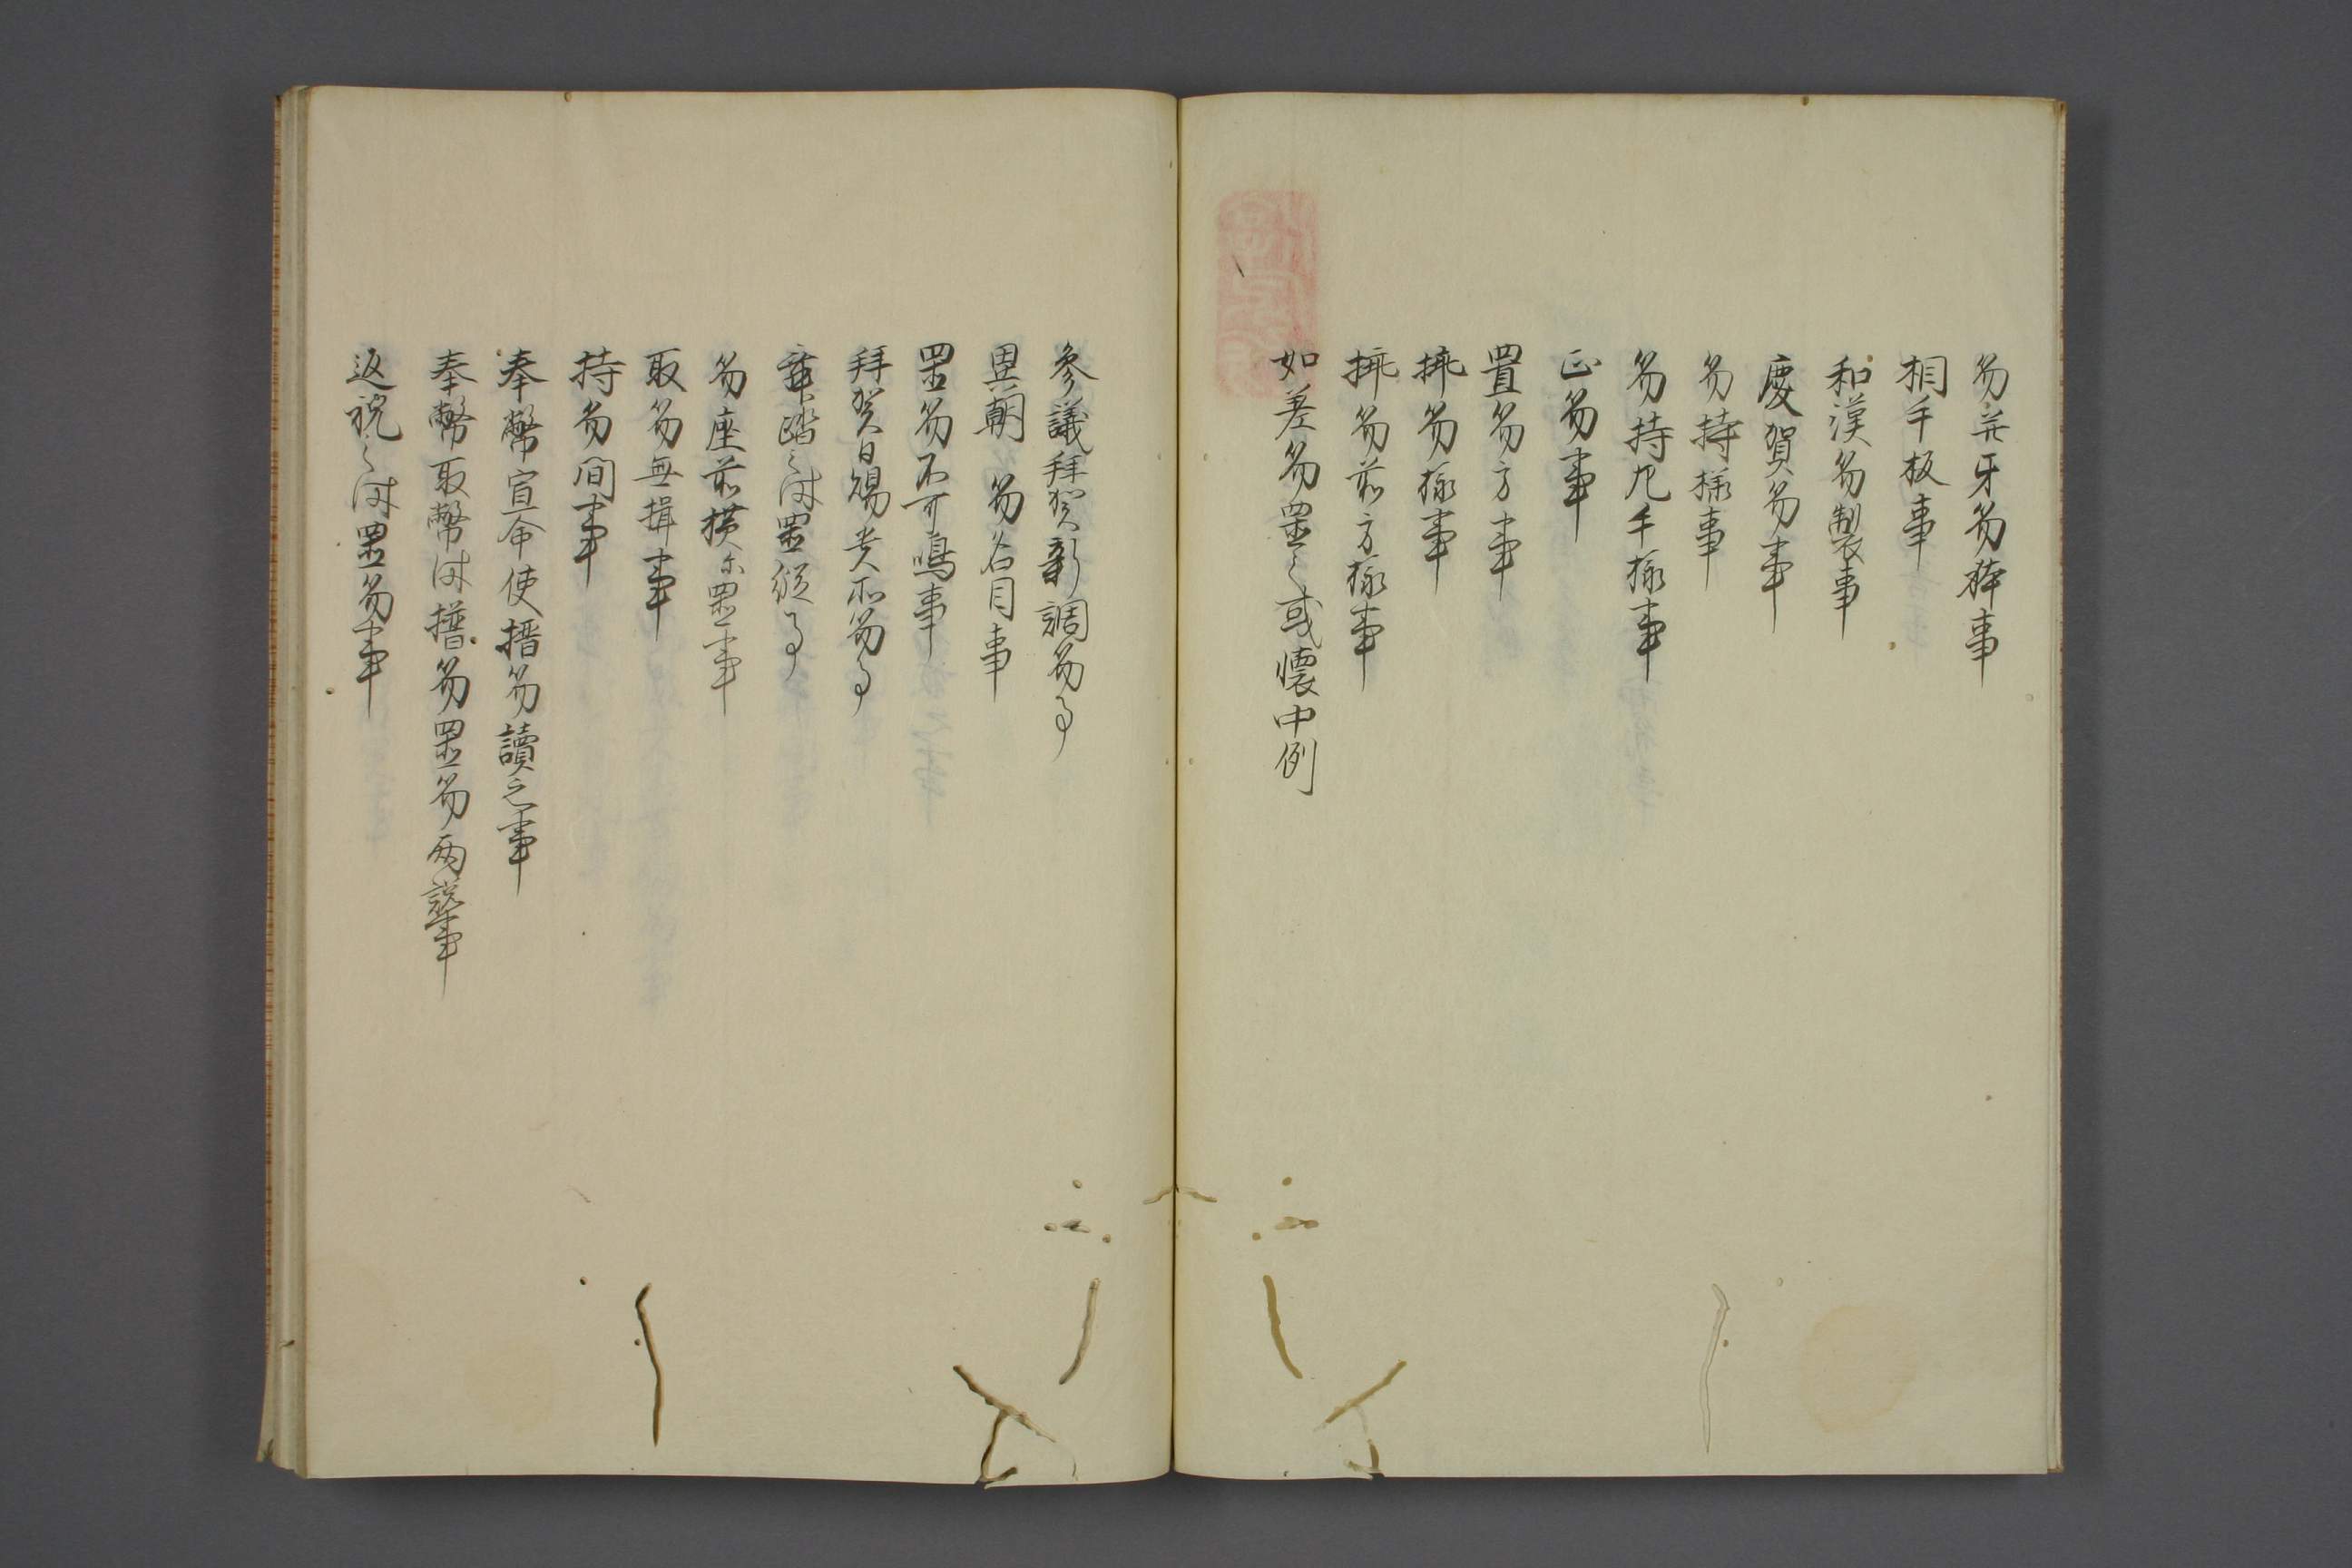 笏并牙笏体事
相手板事
和漢笏製事
慶賀笏事
笏持様事
笏持左手様事
正笏事
置笏方事
挿笏様事
挿笏前方様事
如差笏置之或懐中例
参議拝賀新調笏事
異朝笏名目事
置笏不可鳴事
拝賀日賜貴所笏事
舞踏之時置縦事
笏座前横尓置事
取笏無揖事
持笏間事
奉幣宣命使搢笏讀之事
奉幣取幣時搢笏置笏両説事
返祝之時置笏事